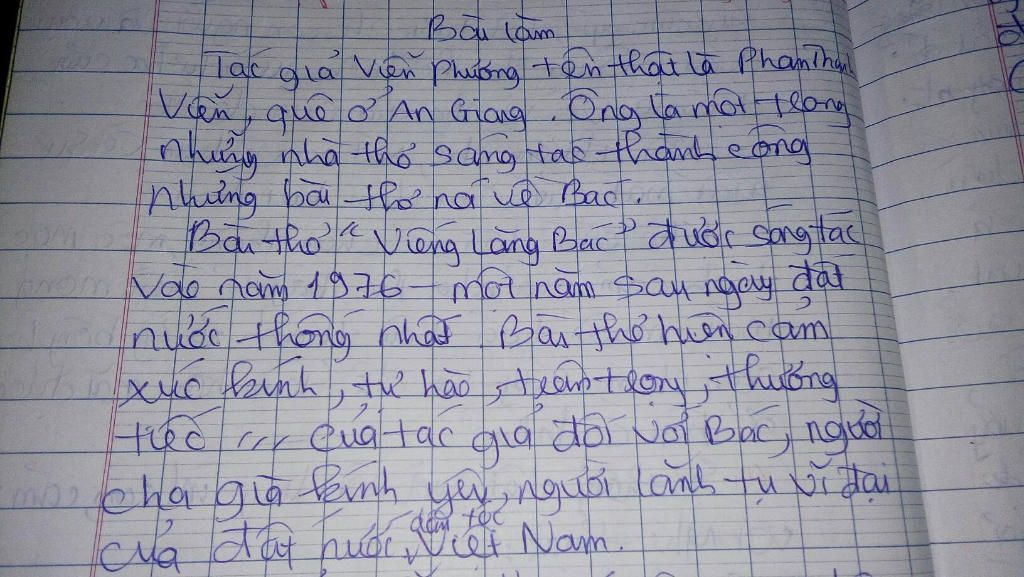 Bài làm
Tác giả Viễn Phương tên thật là Phan Thanh
Viễn, quê ở An Giang. Ông là một trong
những nhà thơ sáng tác thành công
những bài thơ về Bác.
Bài thơ "Viếng lăng Bác" được sáng tác
vào năm 1976 - một năm sau ngày đất
nước thống nhất. Bài thơ hiện cảm
xúc kính, tự hào, trân trọng, thương
tiếc ,,, của tác giả đối với Bác, người
cha già kính yêu, người lãnh tụ vĩ đại
dân tộc
của đất nước, Việt Nam.